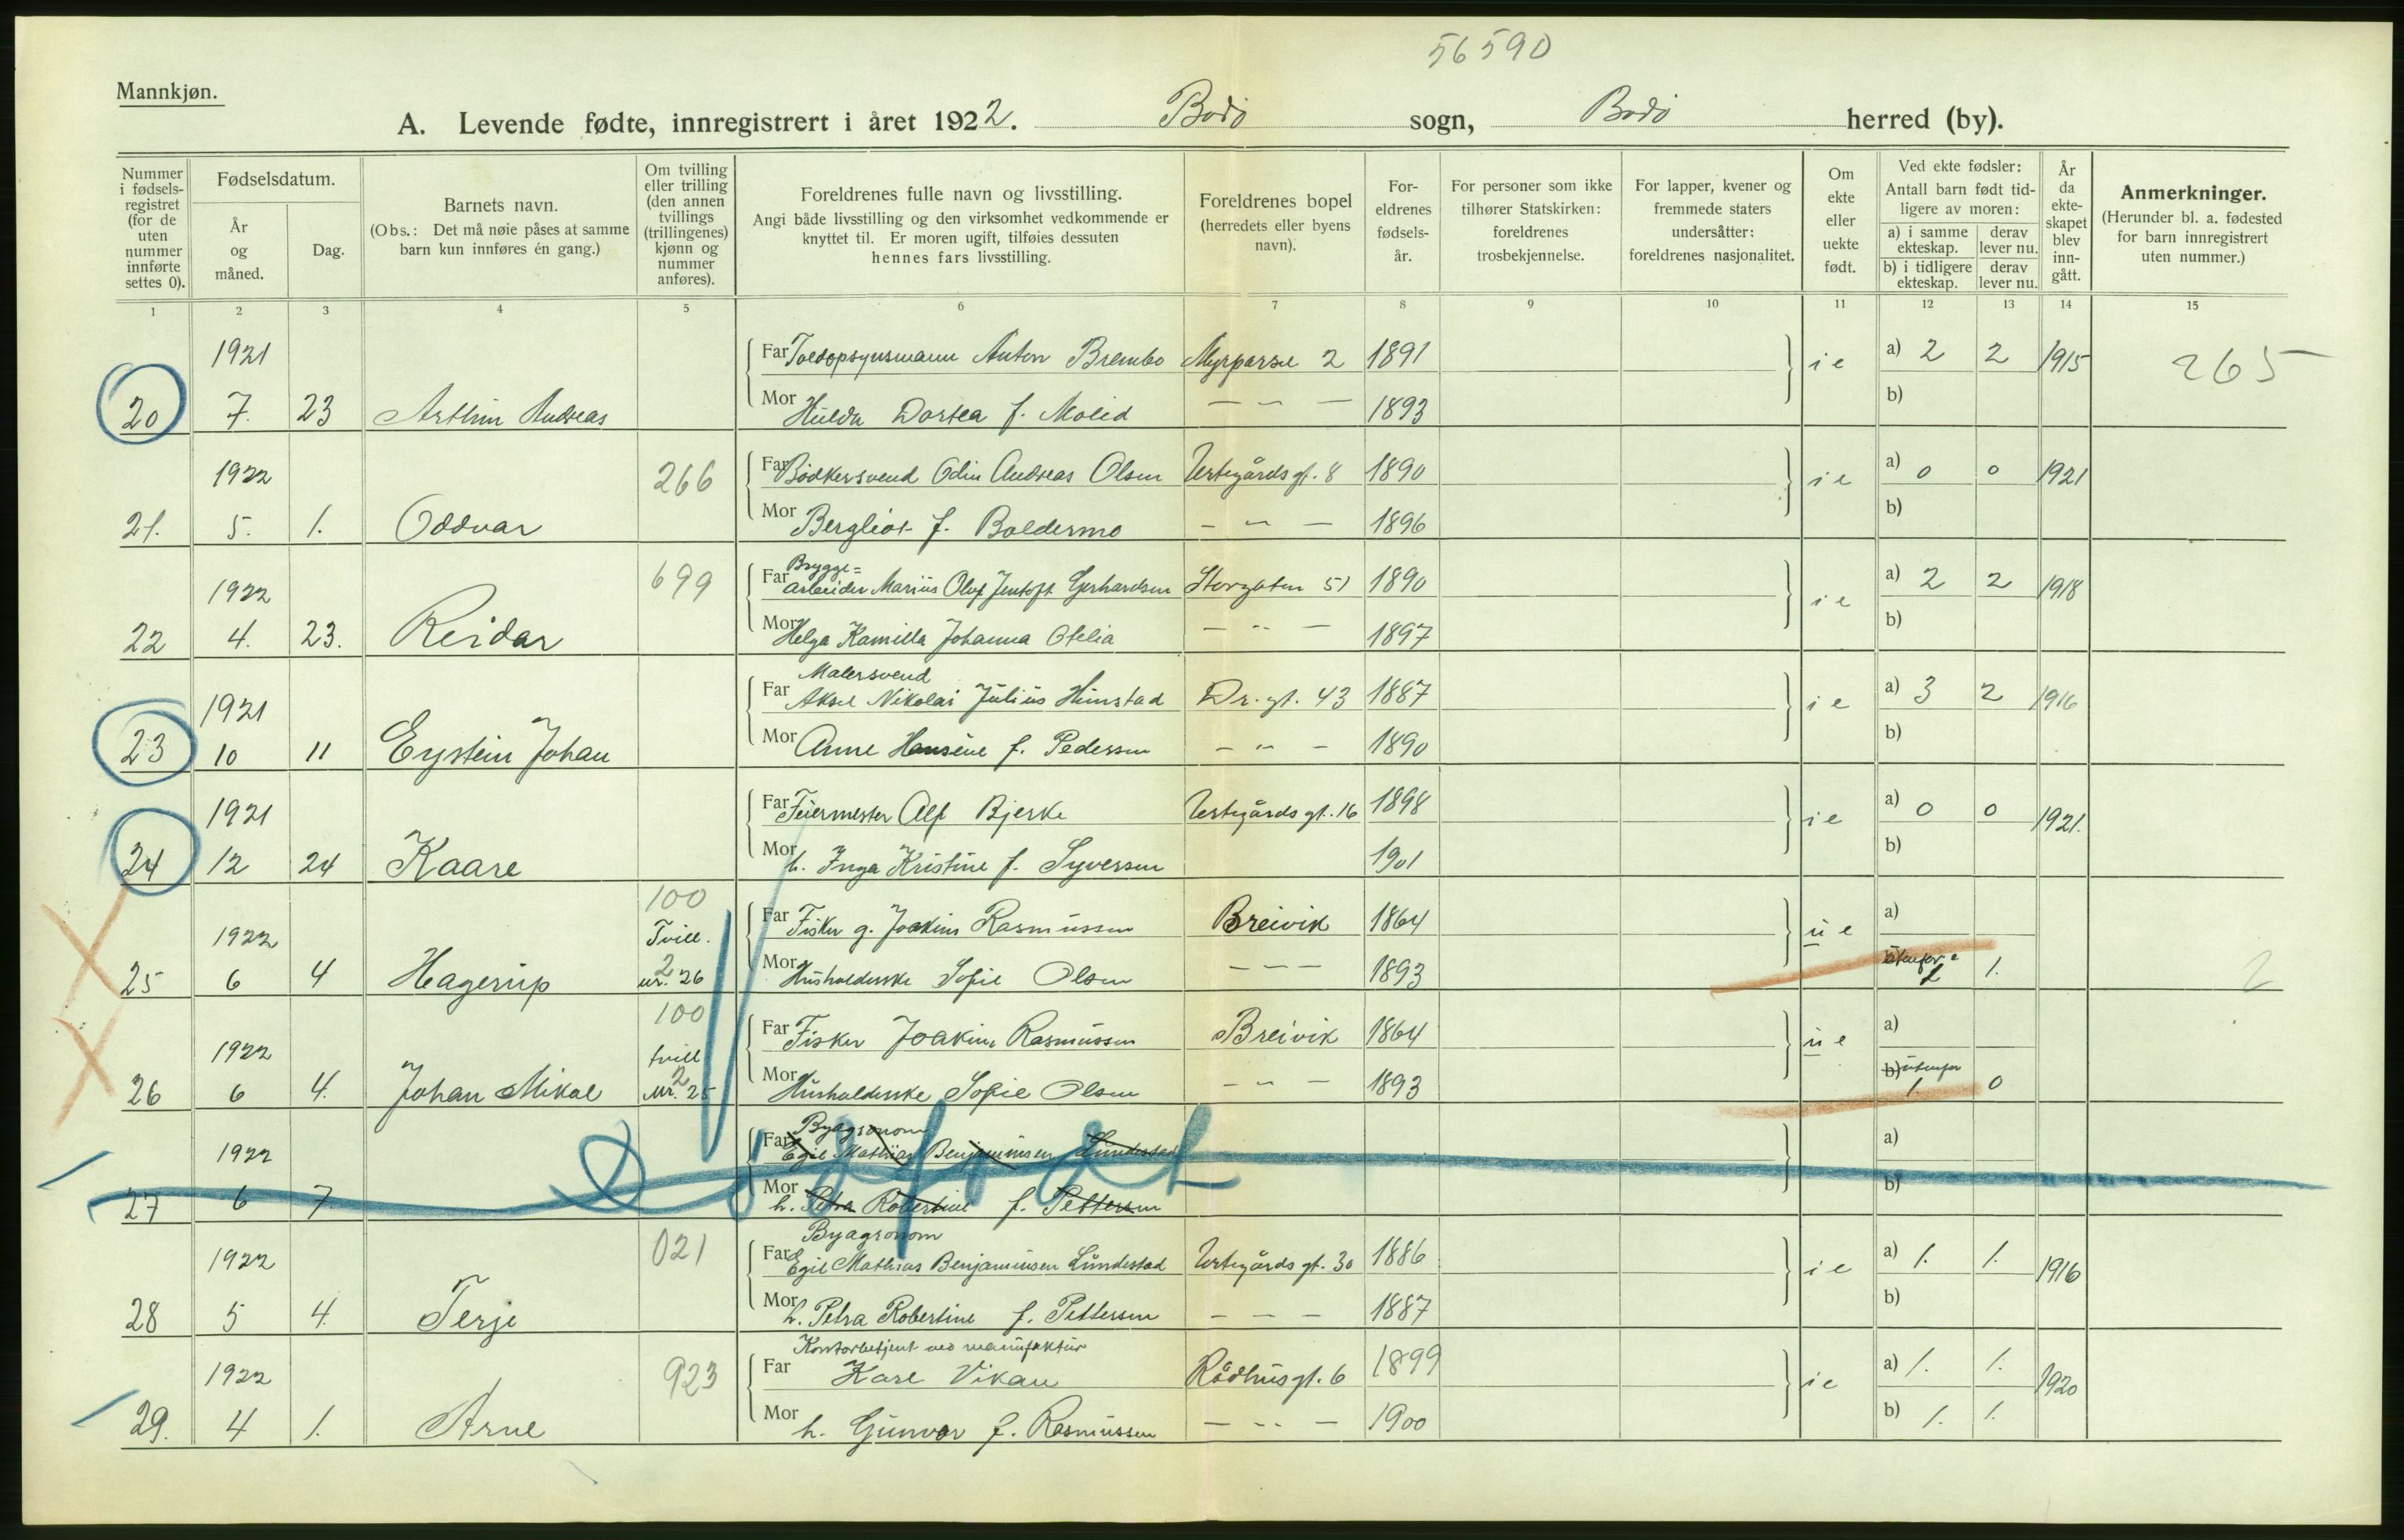 56590
Mannkjøn.
A. Levende fødte, innregistrert i året 1922. Bodø sogn, Bodø herred (by).
Nummer i fødsels-registret (for de uten nummer innførte settes 0).
Fødselsdatum.
År og måned.
Dag.
Barnets navn.
(Obs.: Det må nøie påses at samme barn kun innføres én gang.)
Om tvilling eller trilling (den annen tvillings (trillingenes) kjønn og nummer anføres).
Foreldrenes fulle navn og livsstilling.
Angi både livsstilling og den virksomhet vedkommende er knyttet til. Er moren ugift, tilføies dessuten hennes fars livsstilling.
Foreldrenes bopel (herredets eller byens navn).
For-eldrenes fødsels-år.
For personer som ikke tilhører Statskirken: foreldrenes trosbekjennelse.
For lapper, kvener og fremmede staters undersåtter: foreldrenes nasjonalitet.
Om ekte eller uekte født.
Ved ekte fødsler:
Antall barn født tid-ligere av moren:
a) i samme ekteskap.
derav lever nu.
b) i tidligere ekteskap.
derav lever nu.
År da ekte-skapet blev inn-gått.
Anmerkninger.
(Herunder bl. a. fødested for barn innregistrert uten nummer.)
1 2 3 4 5 6 7 8 9 10 11 12 13 14 15
1921 Far Toldopsynsmann Anton Brembo Myrparsel 2 1891 i e a) 2 2 1915 265
20 7. 23 Arthur Andreas Mor Hulda Dortea f. Molid — — — 1893 b)
1922 266 Far Bødkersvend Odin Andreas Olsen Vestegårds gt. 8 1890 i e a) 0 0 1921
21. 5. 1. Oddvar Mor Bergliot f. Boldermo — — — 1896 b)
Brygge=
1922 699 Far arbeider Marius Oluf Jentoft Gerhardsen Storgaten 51 1890 i e a) 2 2 1918
22 4. 23. Reidar Mor Helga Kamilla Johanna Ofelia — " — 1897 b)
Malersvend
1921 Far Aksel Nikolai Julius Himstad Dr. gt. 43 1887 i e a) 3 2 1916
23 10 11 Eystein Johan Mor Anne Hansine f. Pedersen — " — 1890 b)
1921 Far Feiermester Alf Bjerke Vestegårds gt. 16 1898 i e a) 0 0 1921.
24 12 24 Kaare Mor h. Inga Kristine f. Syversen 1901 b)
100
1922 Tvill. Far Fisker g. Joakim Rasmussen Breivik 1864 u e a)
25 6 4 Hagerup 2 nr. 26 Mor Husholderske Sofie Olsen — — — 1893 utenfor 1 1. 2
100
1922 tvill Far Fisker Joakim Rasmussen Breivik 1864 u e a)
26 6 4. Johan Mikal 2 nr. 25 Mor Husholderske Sofie Olsen — " — 1893 b) utenfor 1. 0
Byagronom
1922 Far Egil Mathias Benjaminsen Lundestad a)
27 6 7. Mor h. Petra Robertine f. Pettersen b)
Byagronom
1922 021 Far Egil Mathias Benjaminsen Lundestad Vestegårds gt. 30 1886 i e a) 1. 1. 1916
28 5 4. Terje Mor h. Petra Robertine f. Pettersen — — — 1887 b)
Kontorbetjent ved manufaktur
1922 923 Far Kare Vikan Rådhusgt. 6 1899 i e a) 1. 1. 1920
29. 4 1. Arne Mor h. Gunvor f. Rasmussen — " — 1900 b) 1. 1.